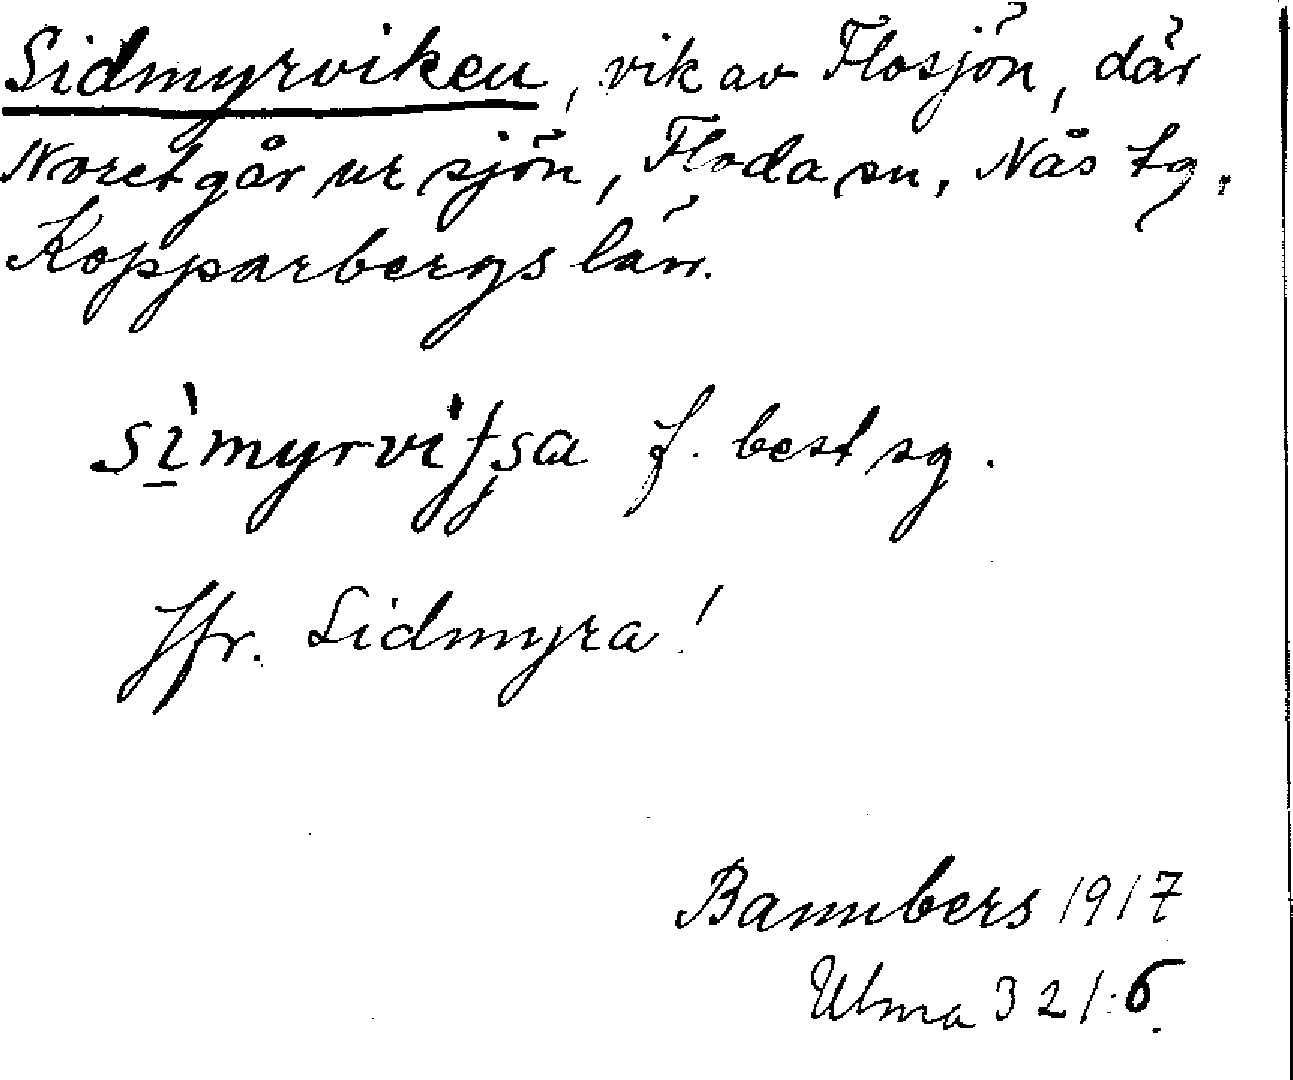 Sidmyrviken, vik av Flosjön, där
Noret går ur sjön, Floda sn, Nås tg,
Kopparbergs län.
sìmyrvitsa f. best sg.
Jfr. Sidmyra!
Bannbers 1917
Ulma 321:6.